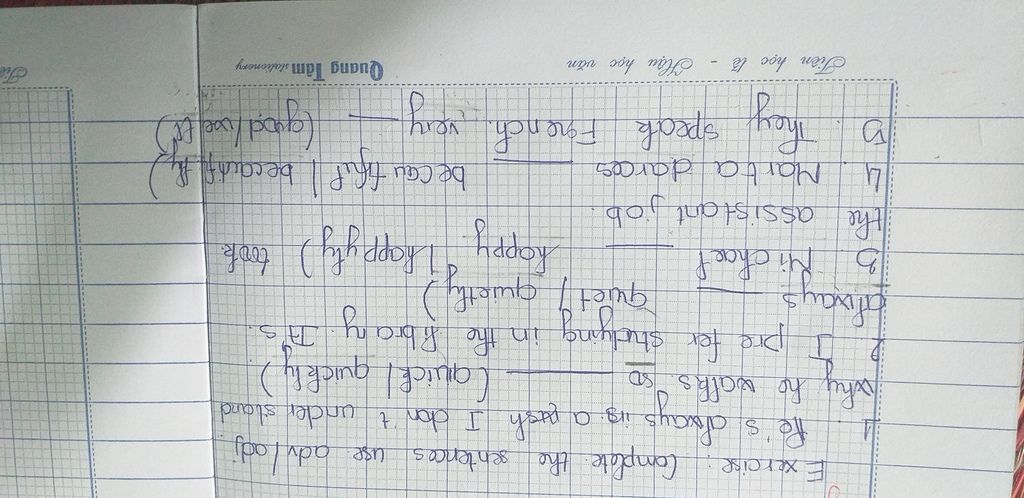 Exercise: Complete the sentences use adv/adj.
1. He's always in a rush I don't understand
why he walks so ____ (quick / quickly)
2 I prefer studying in the library. It's
always ____ quiet / quietly)
3. Michael ____ happy / happyly) took
the assistant job.
4. Marta dances ____ beautiful / beautifly)
5 They speak French very ____. (good/well)
Tiên học lễ - Hậu học văn Quang Tâm stationery
Tiên